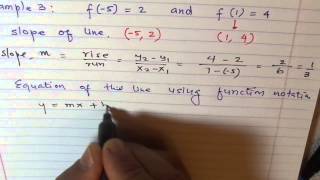 ample 3 : f(-5) = 2 and f(1) = 4
slope of line. (-5, 2) (1, 4)
slope, m = rise/run = y₂-y₁/x₂-x₁ = 4-2/1-(-5) = 2/6 = 1/3
Equation of the line using function notatio
y = mx +